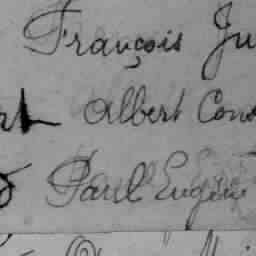 François Ju
Albert Cons
Paul Eugène